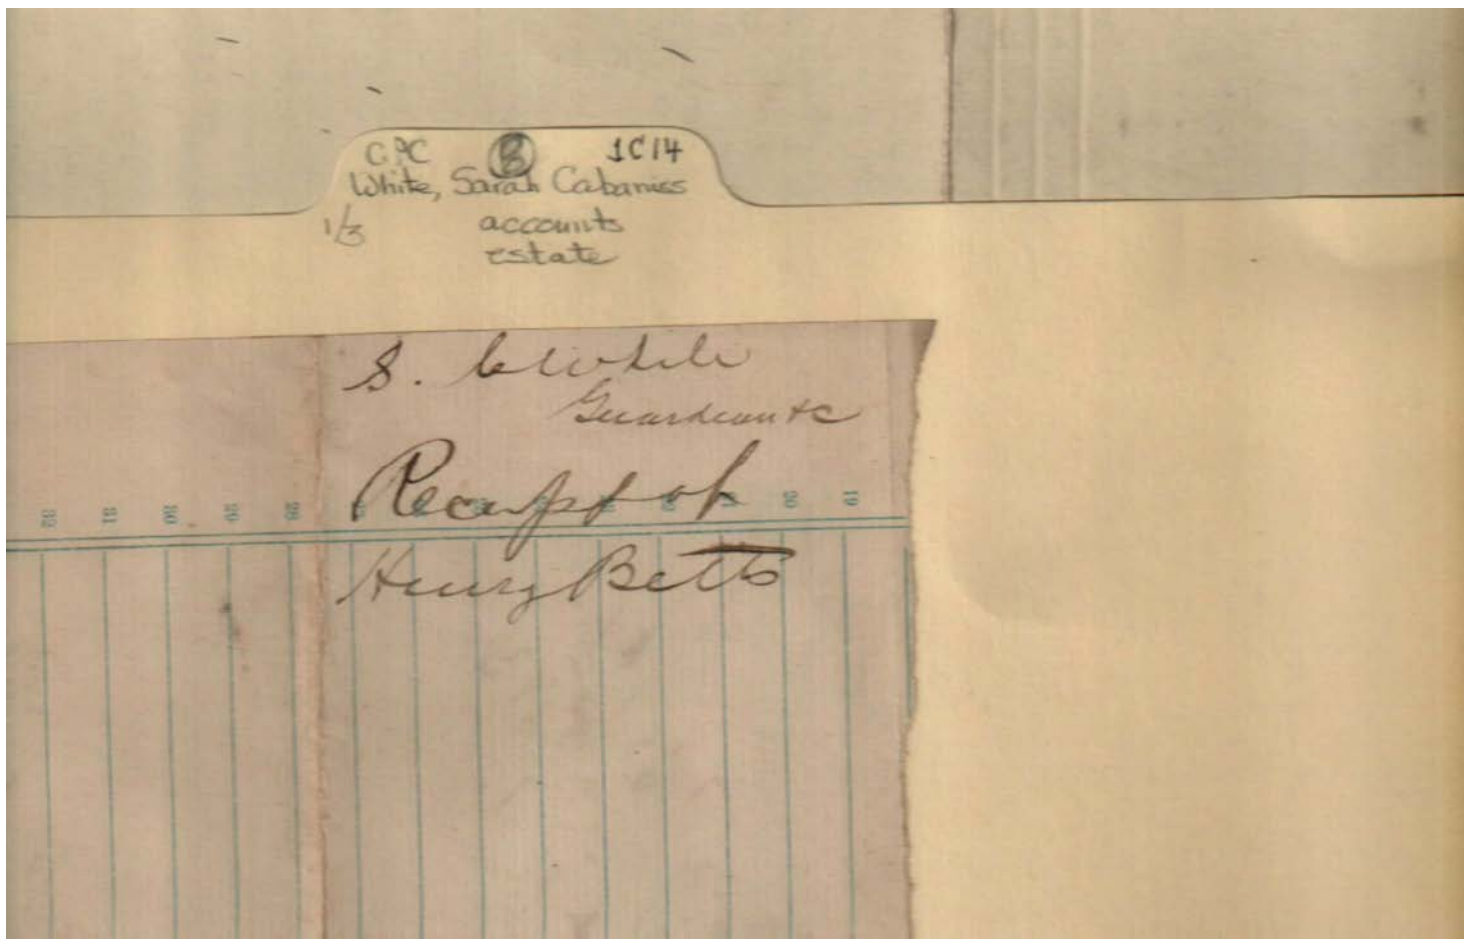 CPC B 1C14
White, Sarah Cabaniss
1/3 accounts
estate
S. C White
Guardian &c
Receipt of
32 31 30 29 28 20 19
Henry Betts